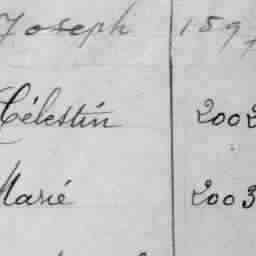 Joseph 1897
Célestin 2002
Marié 2003